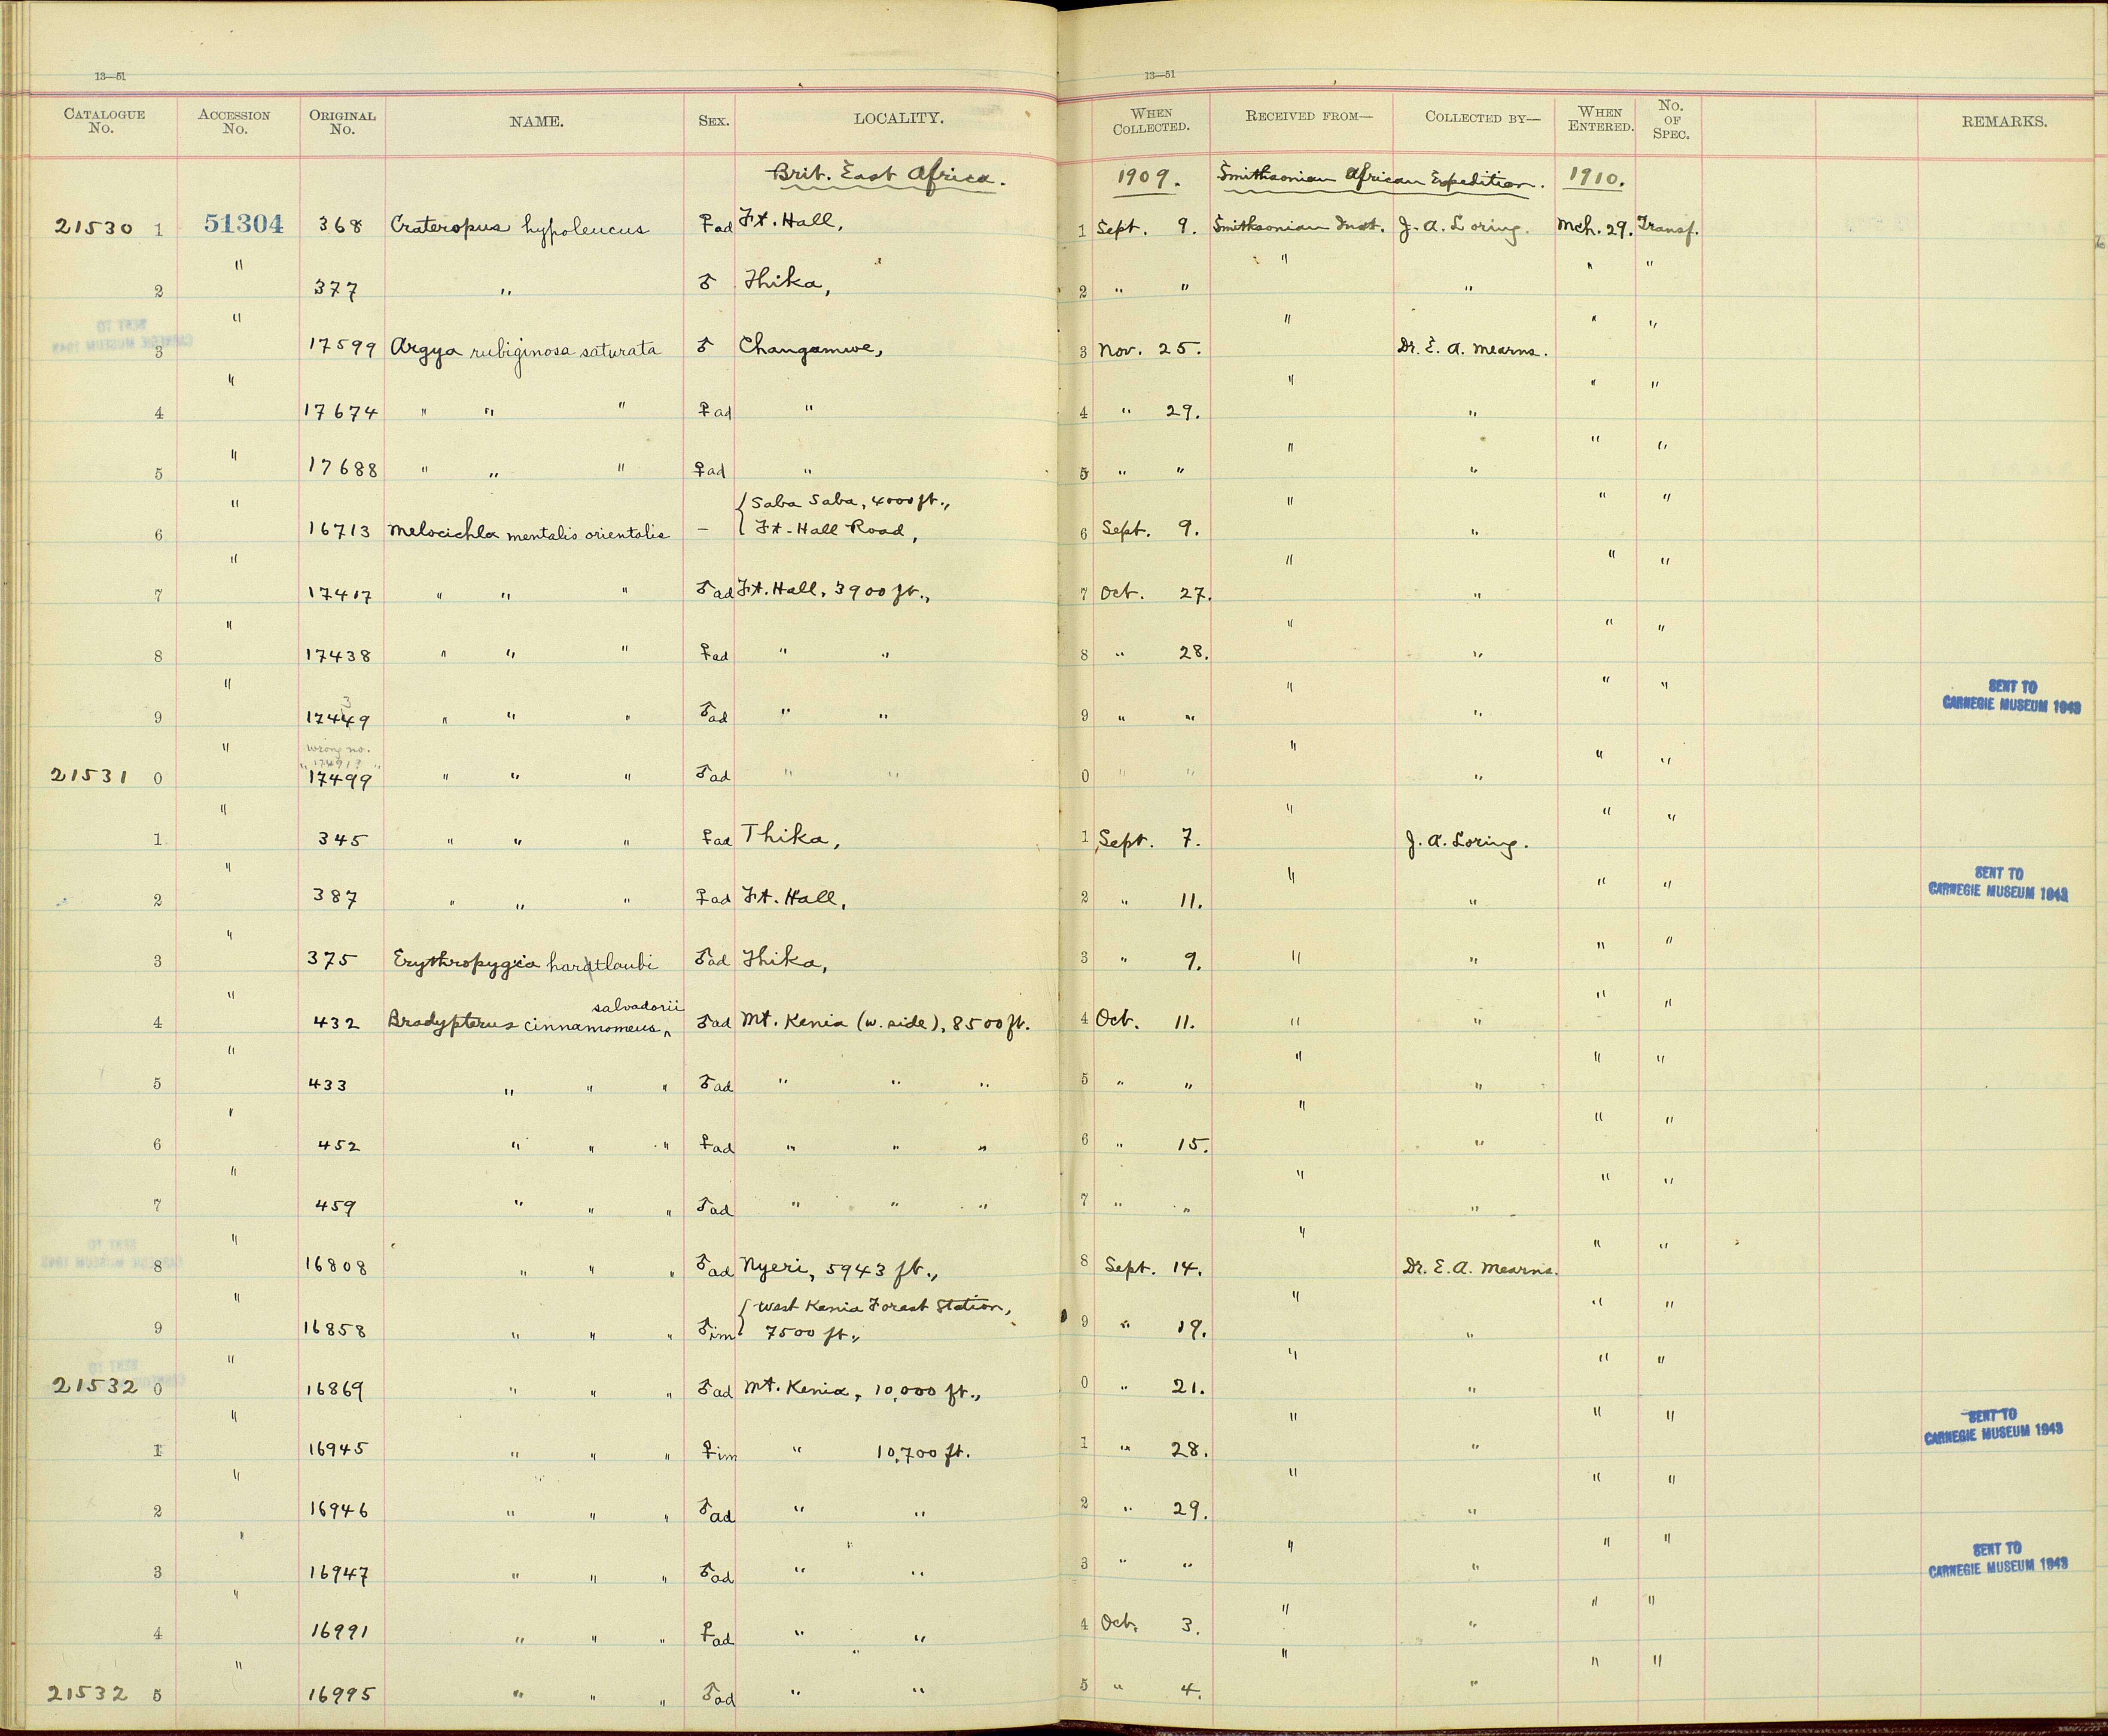 13—51
13—51
CATALOGUE No. ACCESSION No. ORIGINAL No. NAME. SEX. LOCALITY. WHEN COLLECTED. RECEIVED FROM— COLLECTED BY— WHEN ENTERED. No. OF SPEC. REMARKS.
Brit. East Africa. 1909. Smithsonian African Expedition. 1910.
21530 1 51304 368 Crateropus hypoleucus ♀ad Ft. Hall, 1 Sept. 9. Smithsonian Inst. J. A. Loring. Mch. 29. Transf.
2 " 377 " ♂ Thika, 2 " " " " " "
3 " 17599 Argya rubiginosa saturata ♂ Changamwe, 3 Nov. 25. " Dr. E. A. Mearns. " "
4 " 17674 " " " ♀ad " 4 " 29. " " " "
5 " 17688 " " " ♀ad " 5 " " " " " "
6 " 16713 Melocichla mentalis orientalis – { Saba Saba, 4000 ft., Ft. Hall Road, 6 Sept. 9. " " " "
7 " 17417 " " " ♂ad Ft. Hall, 3900 ft., 7 Oct. 27. " " " "
8 " 17438 " " " ♀ad " " 8 " 28. " " " "
3
9 " 17449 " " " ♂ad " " 9 " " " " " " SENT TO CARNEGIE MUSEUM 1943
wrong no.
21531 0 " 17499 " " " ♂ad " " 0 " " " " " "
1 " 345 " " " ♀ad Thika, 1 Sept. 7. " J. A. Loring. " "
2 " 387 " " " ♀ad Ft. Hall, 2 " 11. " " " " SENT TO CARNEGIE MUSEUM 1943
3 " 375 Erythropygia hartlaubi ♂ad Thika, 3 " 9. " " " "
salvadorii
4 " 432 Bradypterus cinnamomeus ^ ♂ad Mt. Kenia (w. side), 8500 ft. 4 Oct. 11. " " " "
5 " 433 " " " ♂ad " " " 5 " " " " " "
6 " 452 " " " ♀ad " " " 6 " 15. " " " "
7 " 459 " " " ♂ad " " " 7 " " " " " "
8 " 16808 " " " ♂ad Nyeri, 5943 ft., 8 Sept. 14. " Dr. E. A. Mearns. " "
9 " 16858 " " " ♂im { West Kenia Forest Station, 7500 ft., 9 " 19. " " " "
21532 0 " 16869 " " " ♂ad Mt. Kenia, 10,000 ft., 0 " 21. " " " "
1 " 16945 " " " ♀im " 10,700 ft. 1 " 28. " " " " SENT TO CARNEGIE MUSEUM 1943
2 " 16946 " " " ♂ad " " 2 " 29. " " " "
3 " 16947 " " " ♂ad " " 3 " " " " " " SENT TO CARNEGIE MUSEUM 1943
4 " 16991 " " " ♀ad " " 4 Oct. 3. " " " "
21532 5 " 16995 " " " ♂ad " " 5 " 4. " " " "